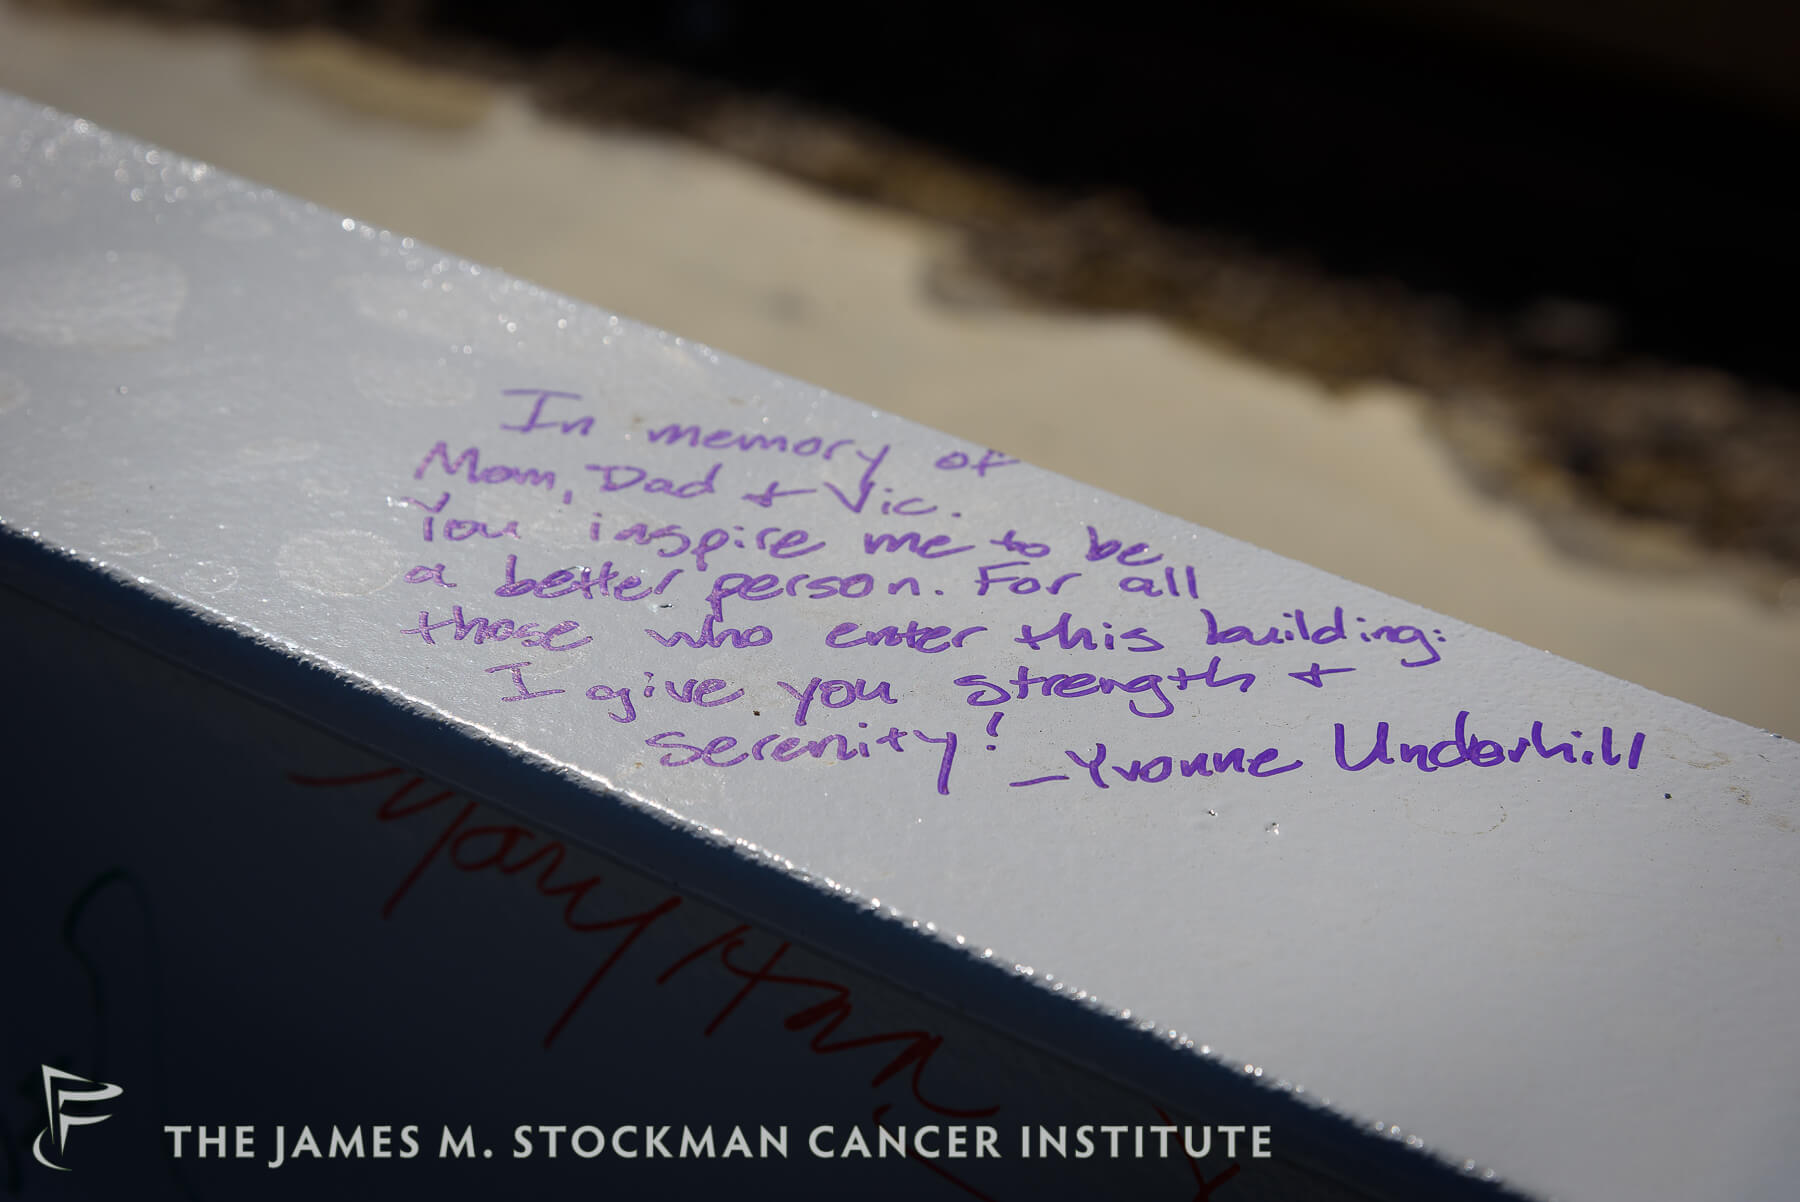 In memory of
Mom, Dad + Vic.
You inspire me to be
a better person. For all
those who enter this building:
I give you strength +
serenity! – Yvonne Underhill
Mary Hann
THE JAMES M. STOCKMAN CANCER INSTITUTE